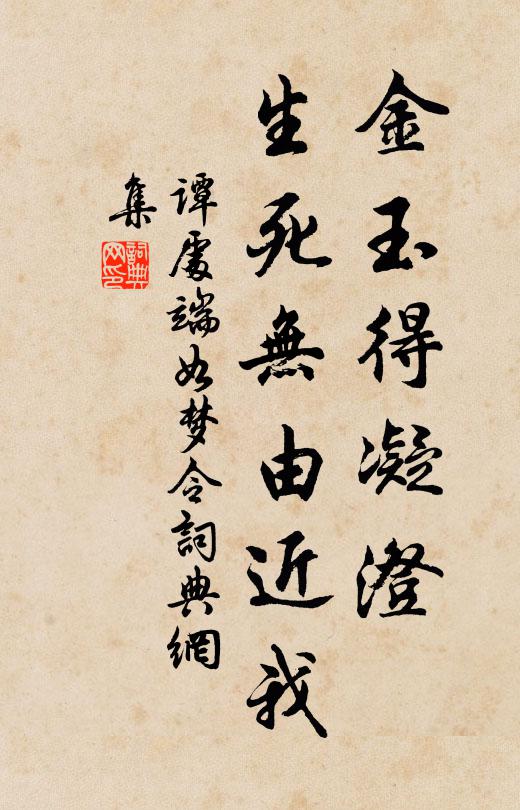 金玉得凝澄
生死無由近我
譚處端如梦令詞典網
集
詞典
网印